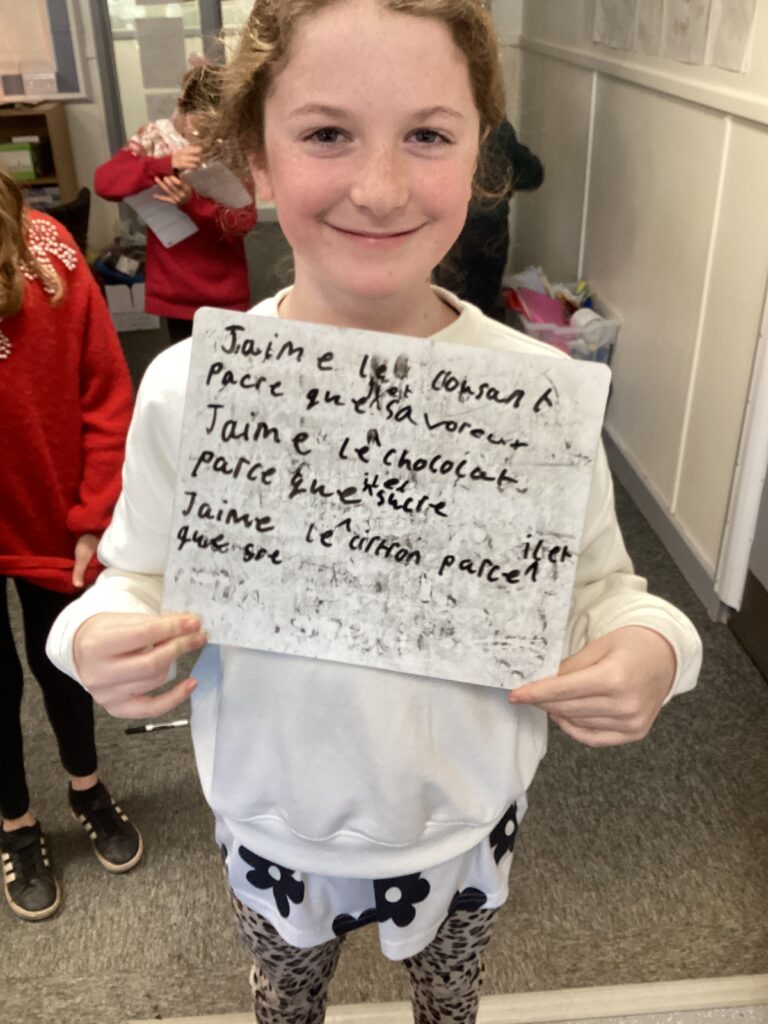 Jaime le corsant
parce que il et savoreux
Jaime le chocolat.
parce que il et sucre
Jaime le citron parce il et
que